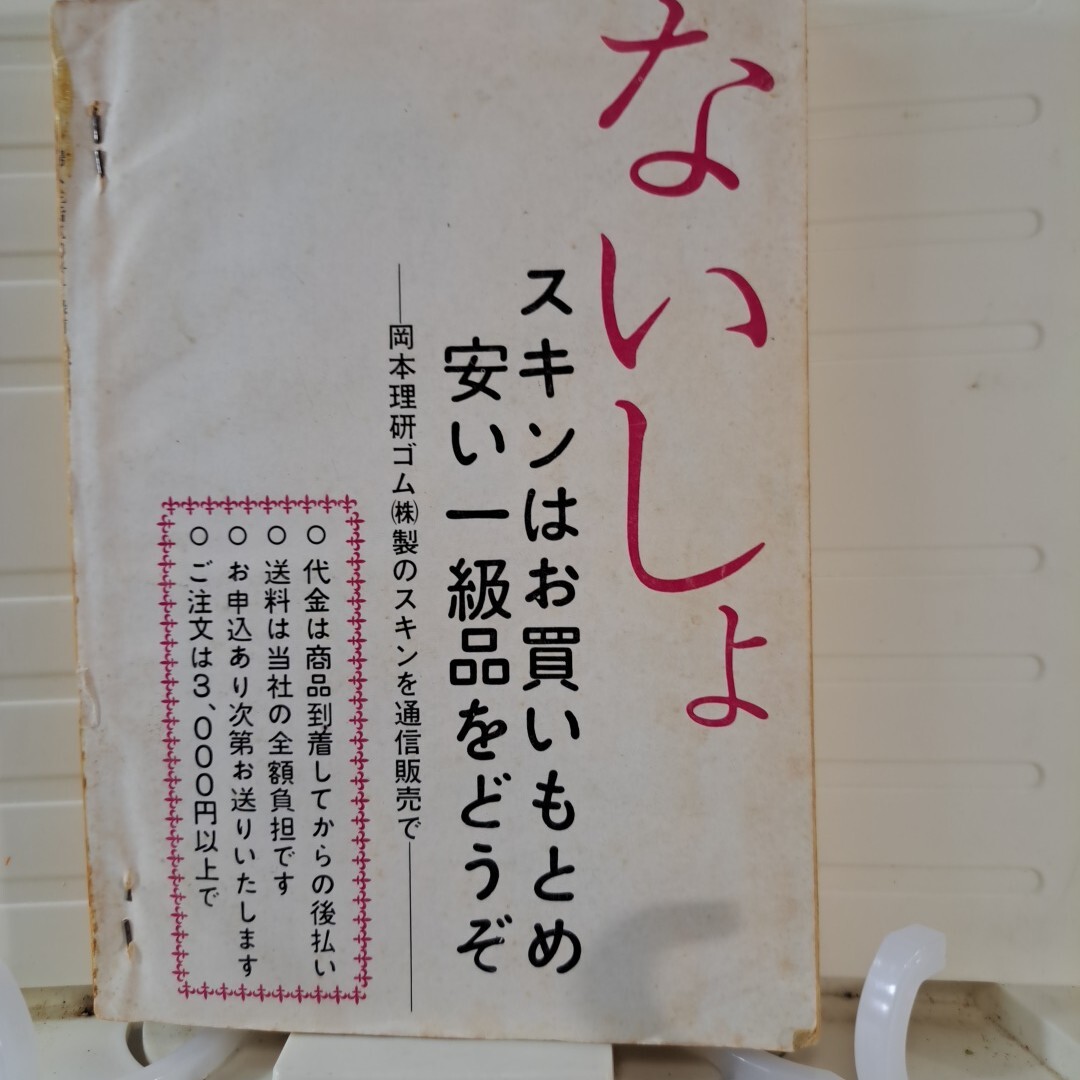 ないしょ
スキンはお買いもとめ
安い一級品をどうぞ
―岡本理研ゴム㈱製のスキンを通信販売で―
○代金は商品到着してからの後払い
○送料は当社の全額負担です
○お申込あり次第お送りいたします
○ご注文は3,000円以上で